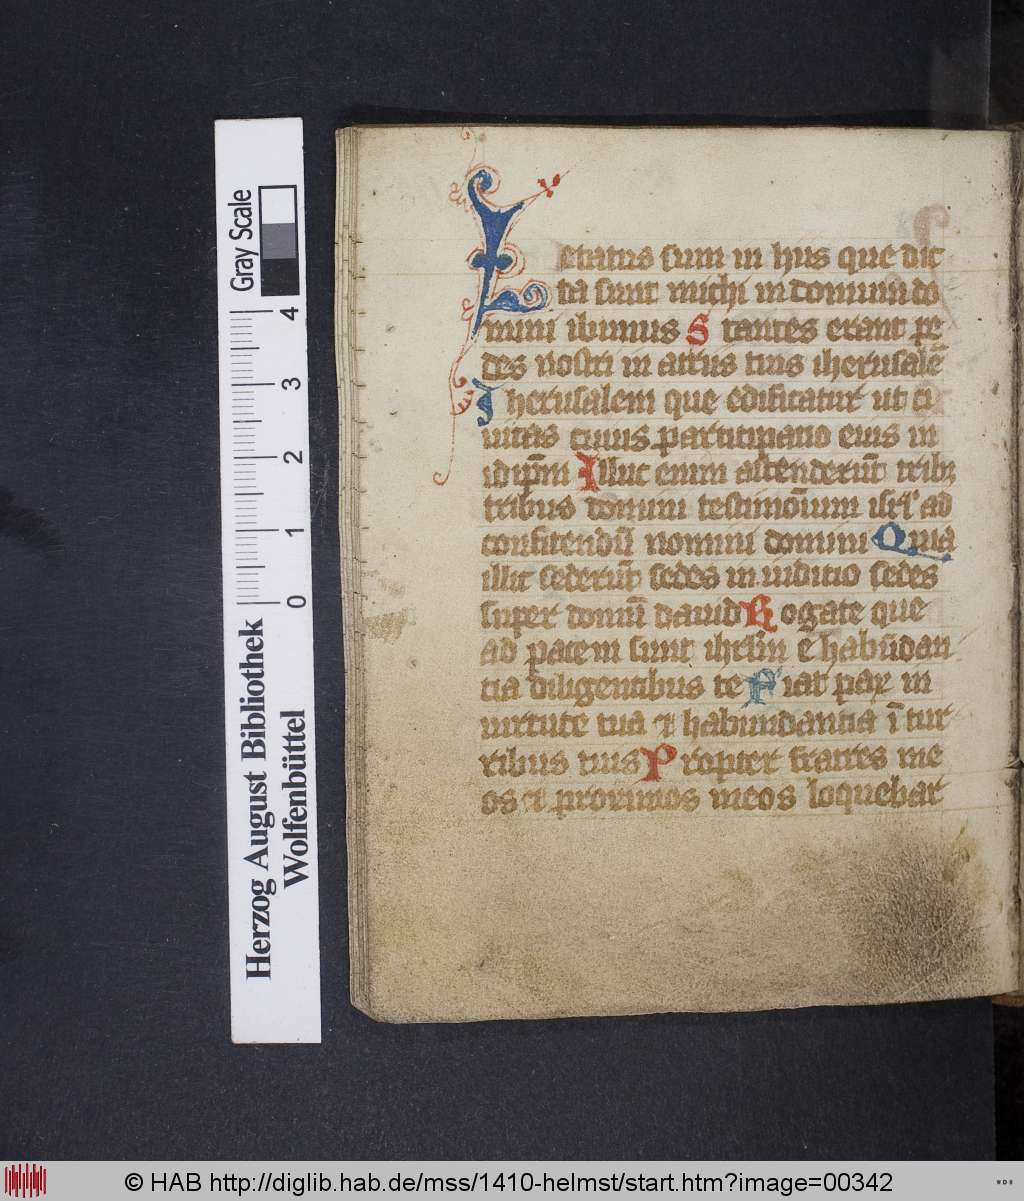 Letatus sum in hiis que dic
ta sunt michi in domum do
mini ibimus Stantes erant pe
des nostri in atriis tuis iherusalē
Iherusalem que edificatur ut ci
uitas cuius participatio eius in
idip̄m Illuc enim ascenderūt tribꝫ
tribus domini testimōium isrl' ad
confitendū nomini domini Quia
illic sederūt sedes in iuditio sedes
super domū dauid Rogate que
ad pacem sunt ihrlm̄ e habūdan
tia diligentibus te Fiat pax in
uirtute tua ⁊ habundantia ī tur
ribus tuis Propter fratres me
os ⁊ proximos meos loquebar
Gray Scale
4
3
2
1
0
Herzog August Bibliothek
Wolfenbüttel
© HAB http://diglib.hab.de/mss/1410-helmst/start.htm?image=00342